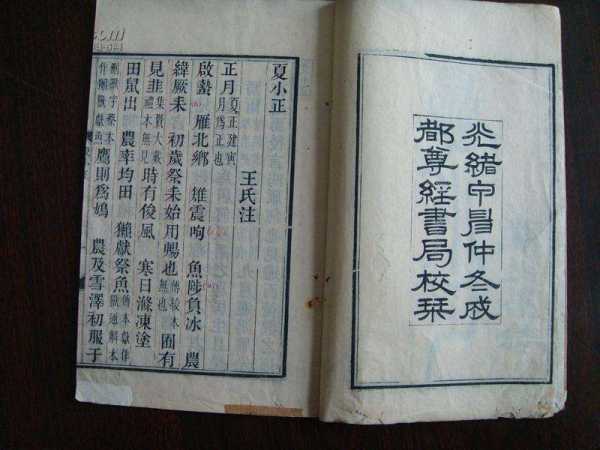 光緒甲申仲冬成
都尊經書局校栞
夏小正
王氏注
正月夏正建寅月爲正也
啟蟄 雁北鄉 雉震呴 魚陟負冰 農
緯厥耒 初歲祭耒始用暢也 囿有
見韭集賢大戴禮本無見 時有俊風 寒日滌凍塗
田鼠出 農率均田 獺獻祭魚
鷹則爲鳩 農及雪澤初服于